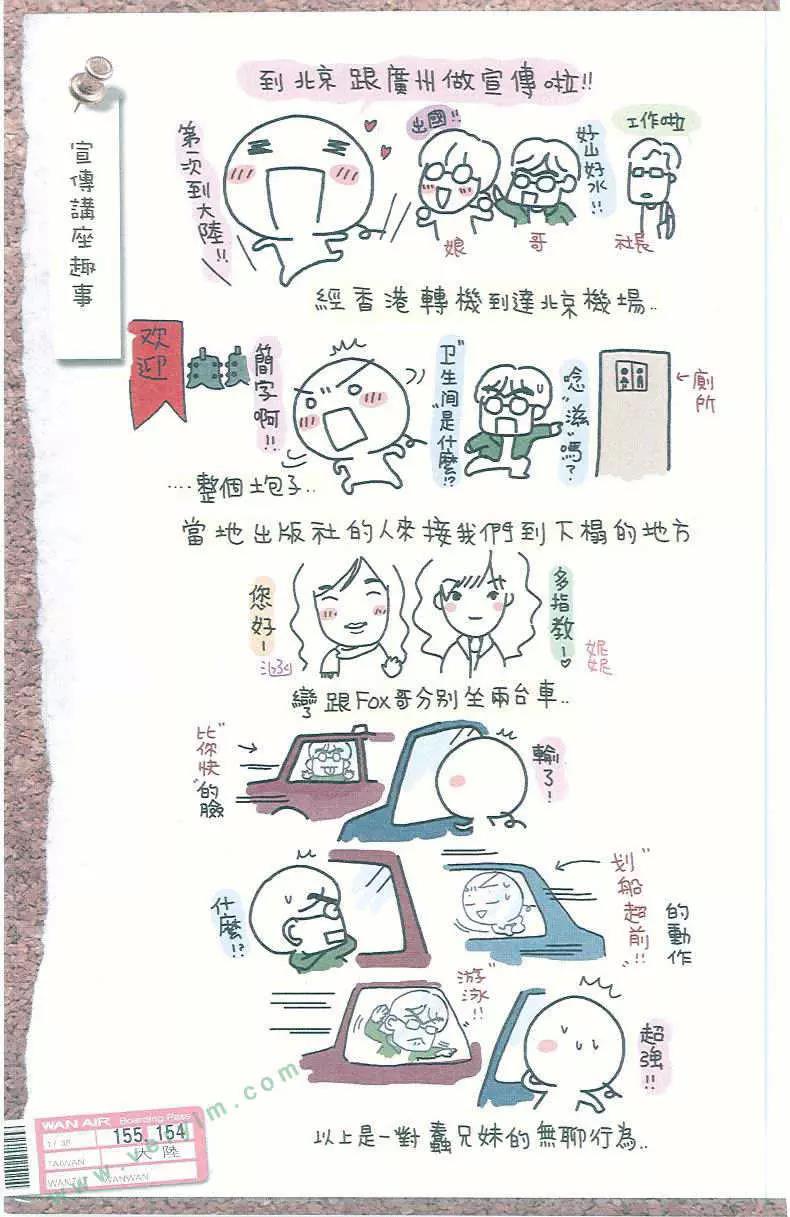 宣傳講座趣事
到北京跟廣州做宣傳啦!!
第一次到大陸!!
出國!!
好山好水!!
工作啦
娘
哥
社長
經香港轉機到達北京機場..
欢迎
簡字啊!!
"卫生间"是什麼!?
唸"滋"嗎?
←廁所
....整個土包子..
當地出版社的人來接我們到下榻的地方
您好~
多指教~
妮妮
彎跟Fox哥分別坐兩台車..
"比你快"的臉
輸了!
什麼!?
"划船超前!!"的動作
"游泳!!"
超強!!
以上是一對蠢兄妹的無聊行為..
WAN AIR Boarding Pass
155.154
TAIWAN
大陸
WANWAN